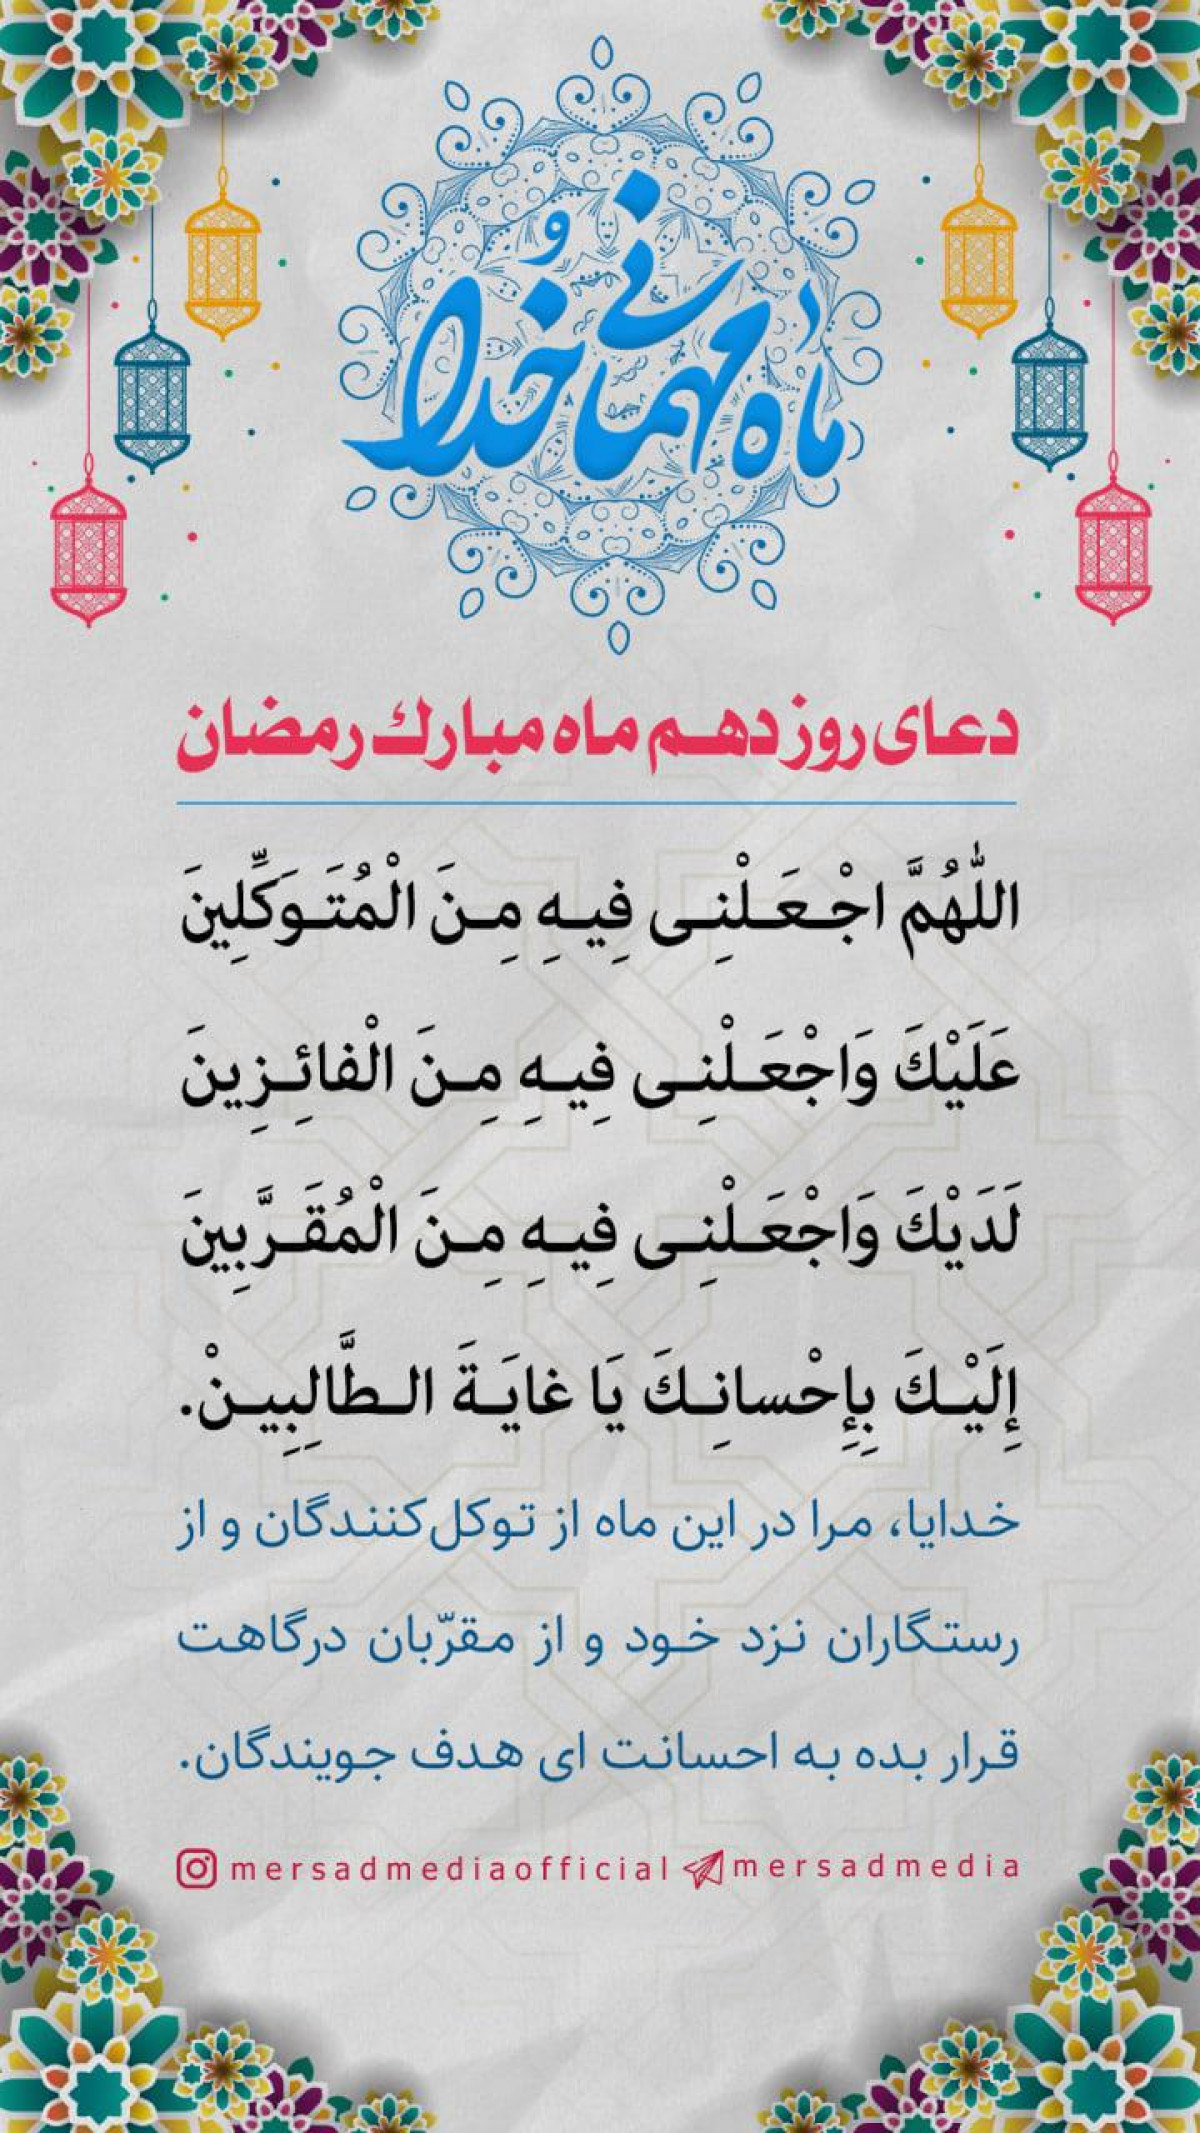 ماه مهمانی خُدا
دعای روز دهم ماه مبارك رمضان
اللّٰهُمَّ اجْعَلْنِی فِیهِ مِنَ الْمُتَوَكِّلِینَ
عَلَیْكَ وَاجْعَلْنِی فِیهِ مِنَ الْفائِزِینَ
لَدَیْكَ وَاجْعَلْنِی فِیهِ مِنَ الْمُقَرَّبِینَ
إِلَیْكَ بِإِحْسانِكَ یَا غایَةَ الطَّالِبِینْ.
خدایا، مرا در این ماه از توکل‌کنندگان و از
رستگاران نزد خود و از مقرّبان درگاهت
قرار بده به احسانت ای هدف جویندگان.
mersadmediaofficial mersadmedia